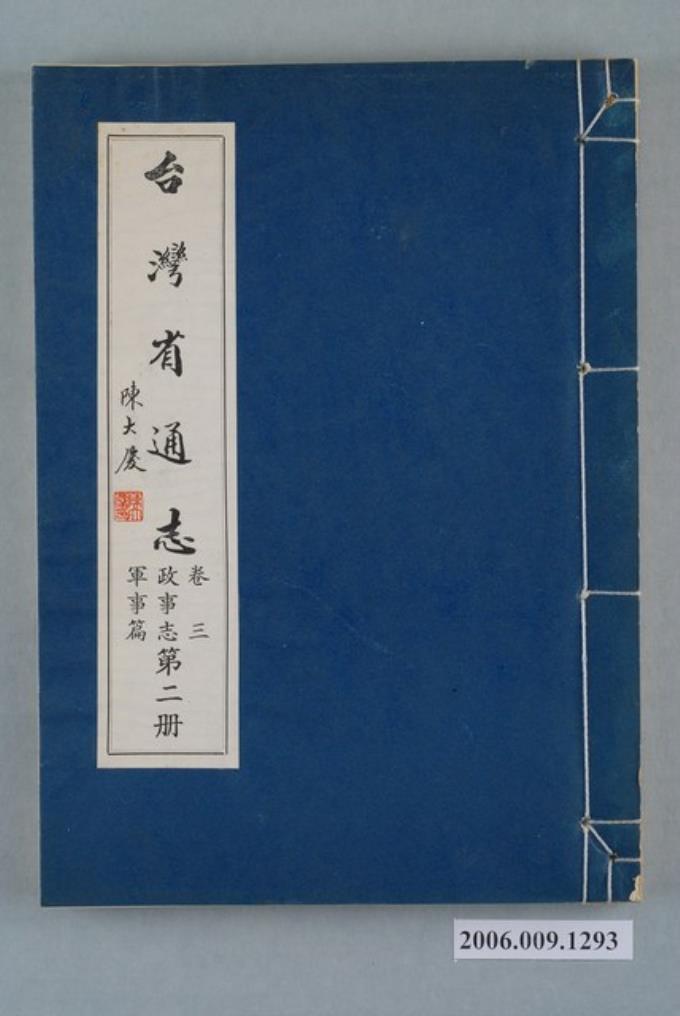 台灣省通志
卷三
政事志
軍事篇
第二冊
陳大慶
2006.009.1293